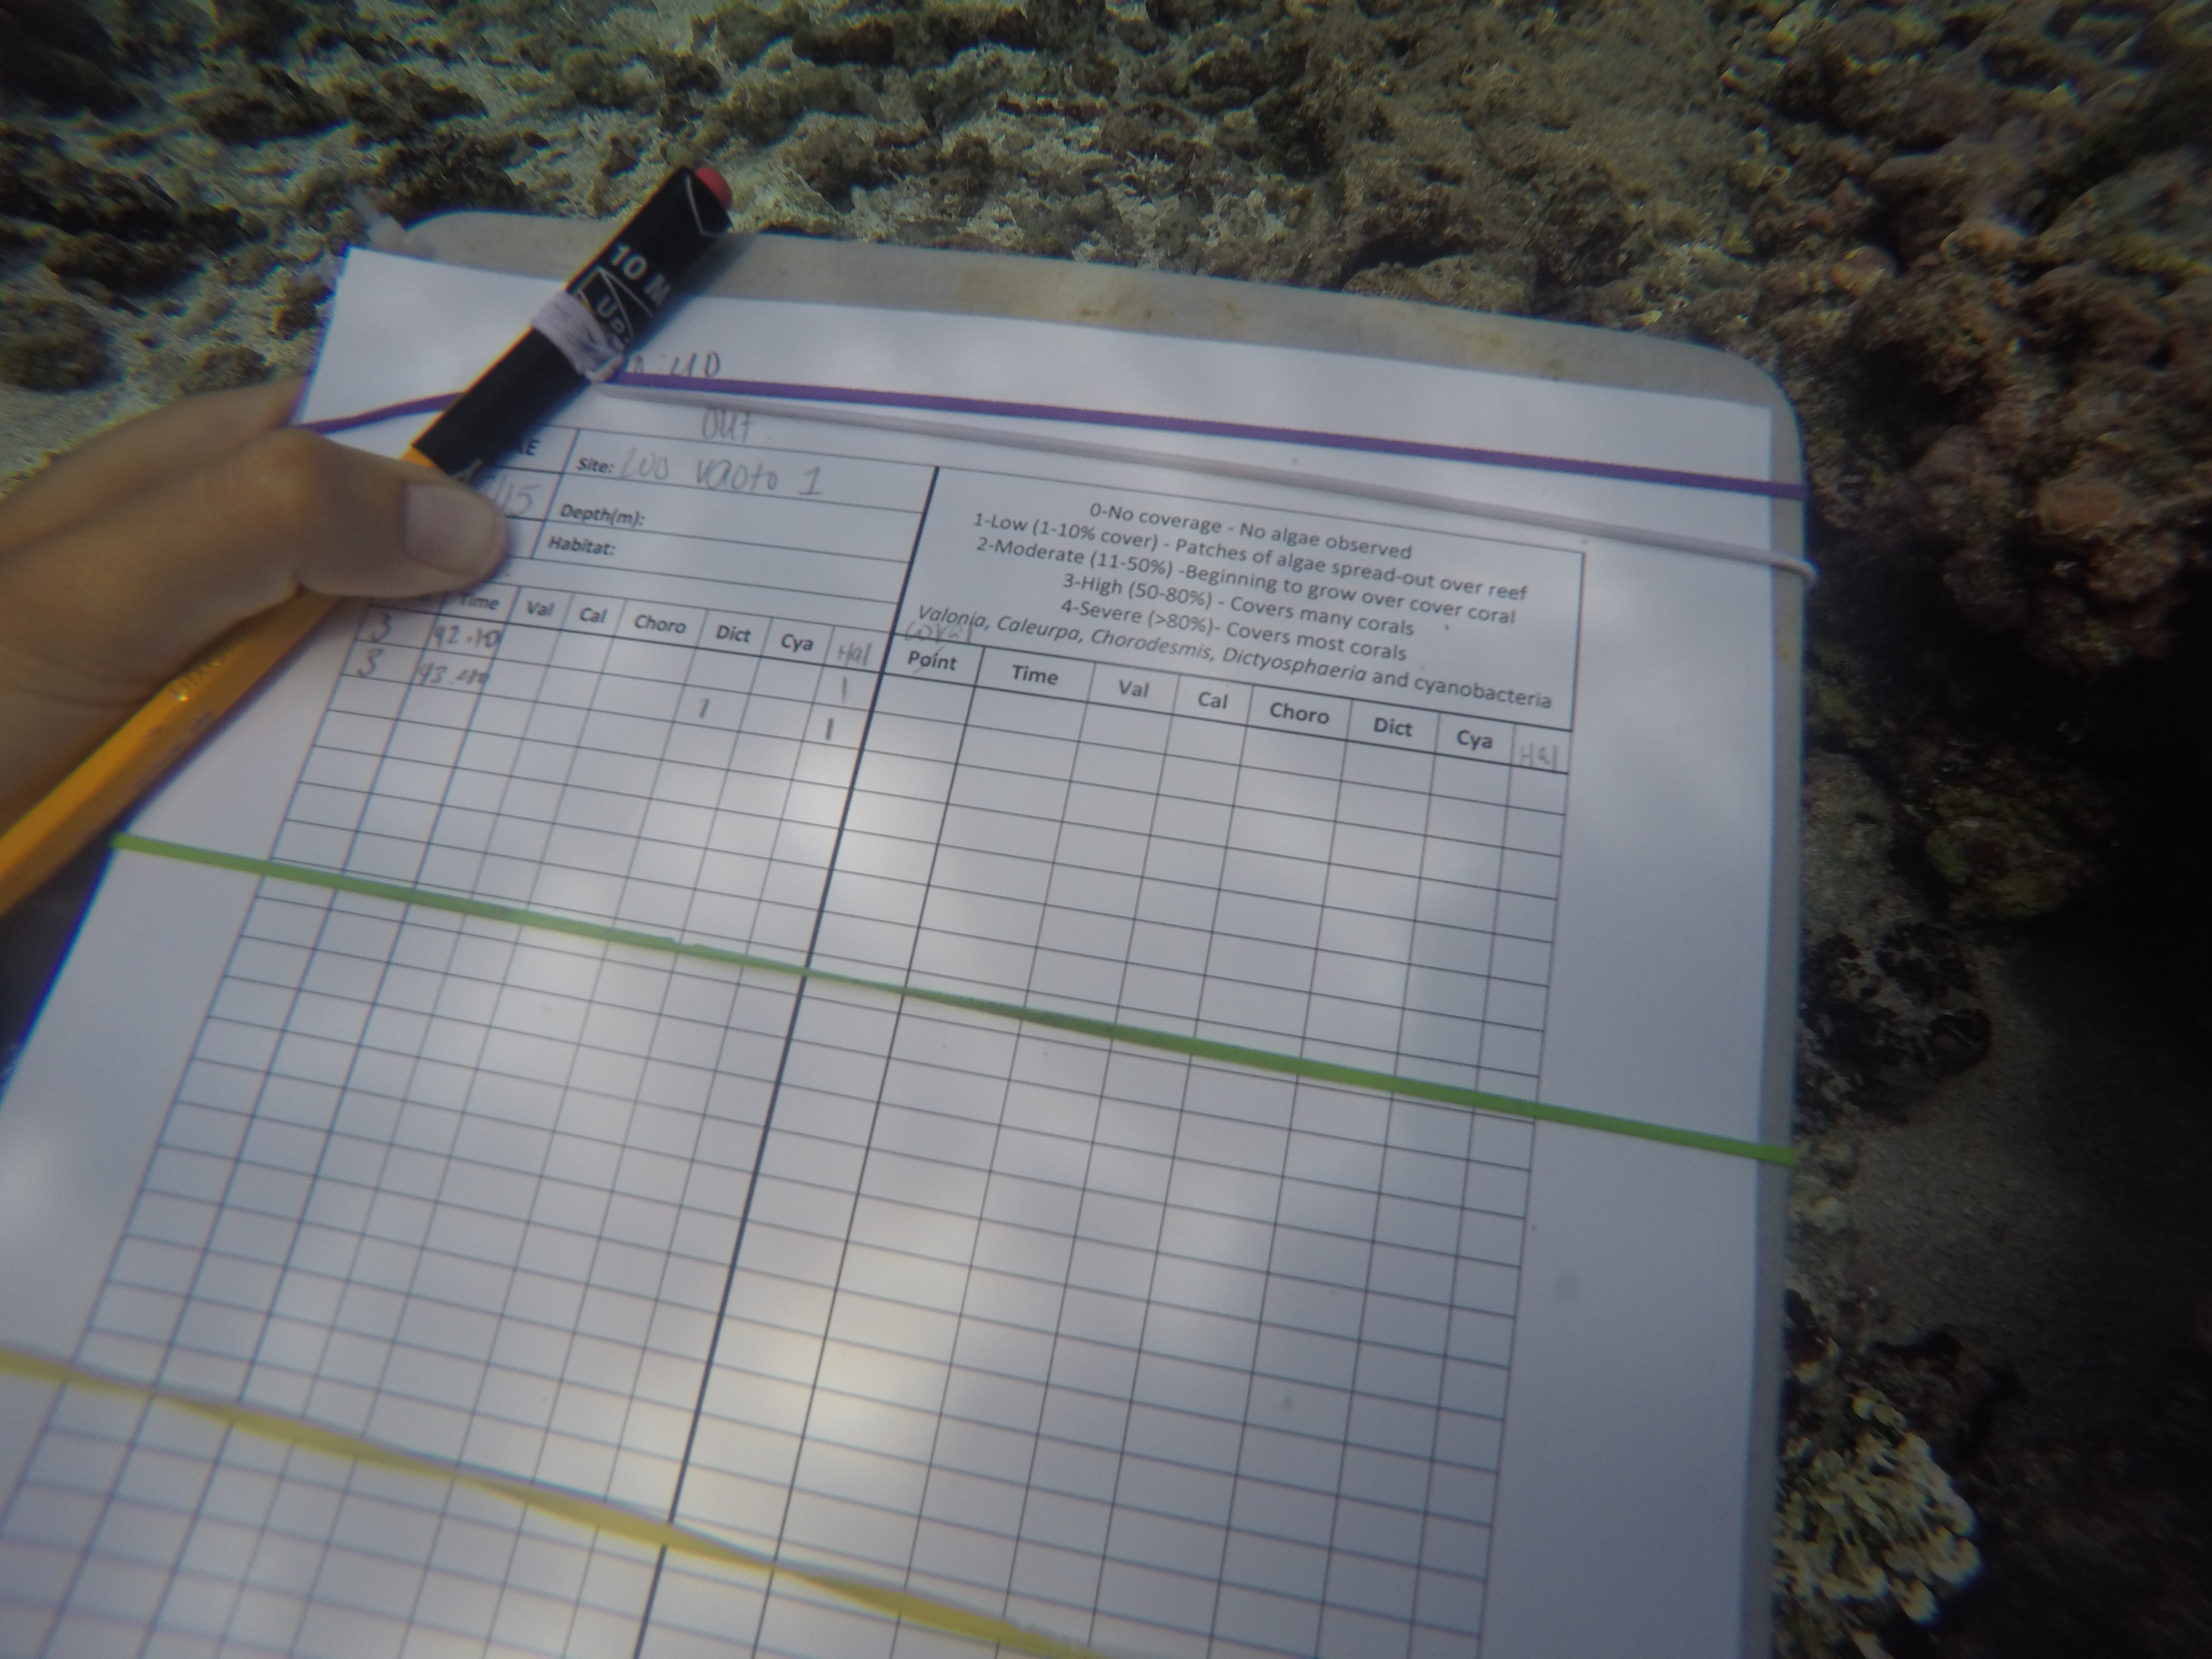 10 M
UP
:40
out
Site: vaoto 1
Depth(m):
Habitat:
0-No coverage - No algae observed
1-Low (1-10% cover) - Patches of algae spread-out over reef
2-Moderate (11-50%) -Beginning to grow over cover coral
3-High (50-80%) - Covers many corals
4-Severe (>80%)- Covers most corals
Valonia, Caleurpa, Chorodesmis, Dictyosphaeria and cyanobacteria
Time Val Cal Choro Dict Cya Hal
3 1
3 1 1
coral
Point Time Val Cal Choro Dict Cya Hal